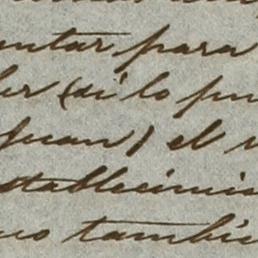 entar para
ler (si lo pu
Juan) el v
stablecimie
uo tambié